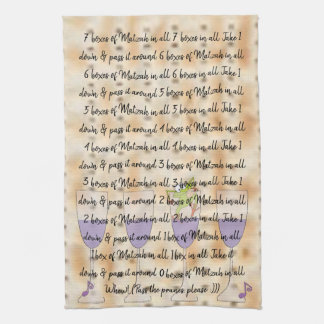 7 boxes of Matzah in all 7 boxes in all Take 1
down & pass it around 6 boxes of Matzah in all
6 boxes of Matzah in all 6 boxes in all Take 1
down & pass it around 5 boxes of Matzah in all
5 boxes of Matzah in all 5 boxes in all Take 1
down & pass it around 4 boxes of Matzah in all
4 boxes of Matzah in all 4 boxes in all Take 1
down & pass it around 3 boxes of Matzah in all
3 boxes of Matzah in all 3 boxes in all Take 1
down & pass it around 2 boxes of Matzah in all
2 boxes of Matzah in all 2 boxes in all Take 1
down & pass it around 1 box of Matzah in all
1 box of Matzah in all 1 box in all Take it
down & pass it around 0 boxes of Matzah in all
Whew! (Pass the prunes please :))